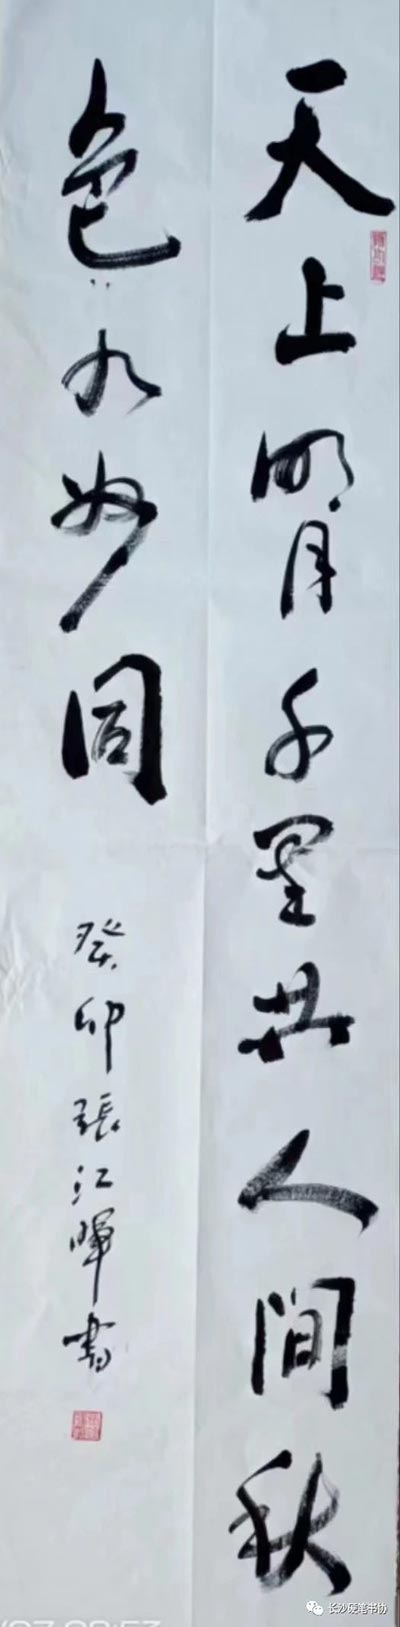 天上明月千里共人间秋
色九州同
癸卯張江暉書
长沙硬笔书协